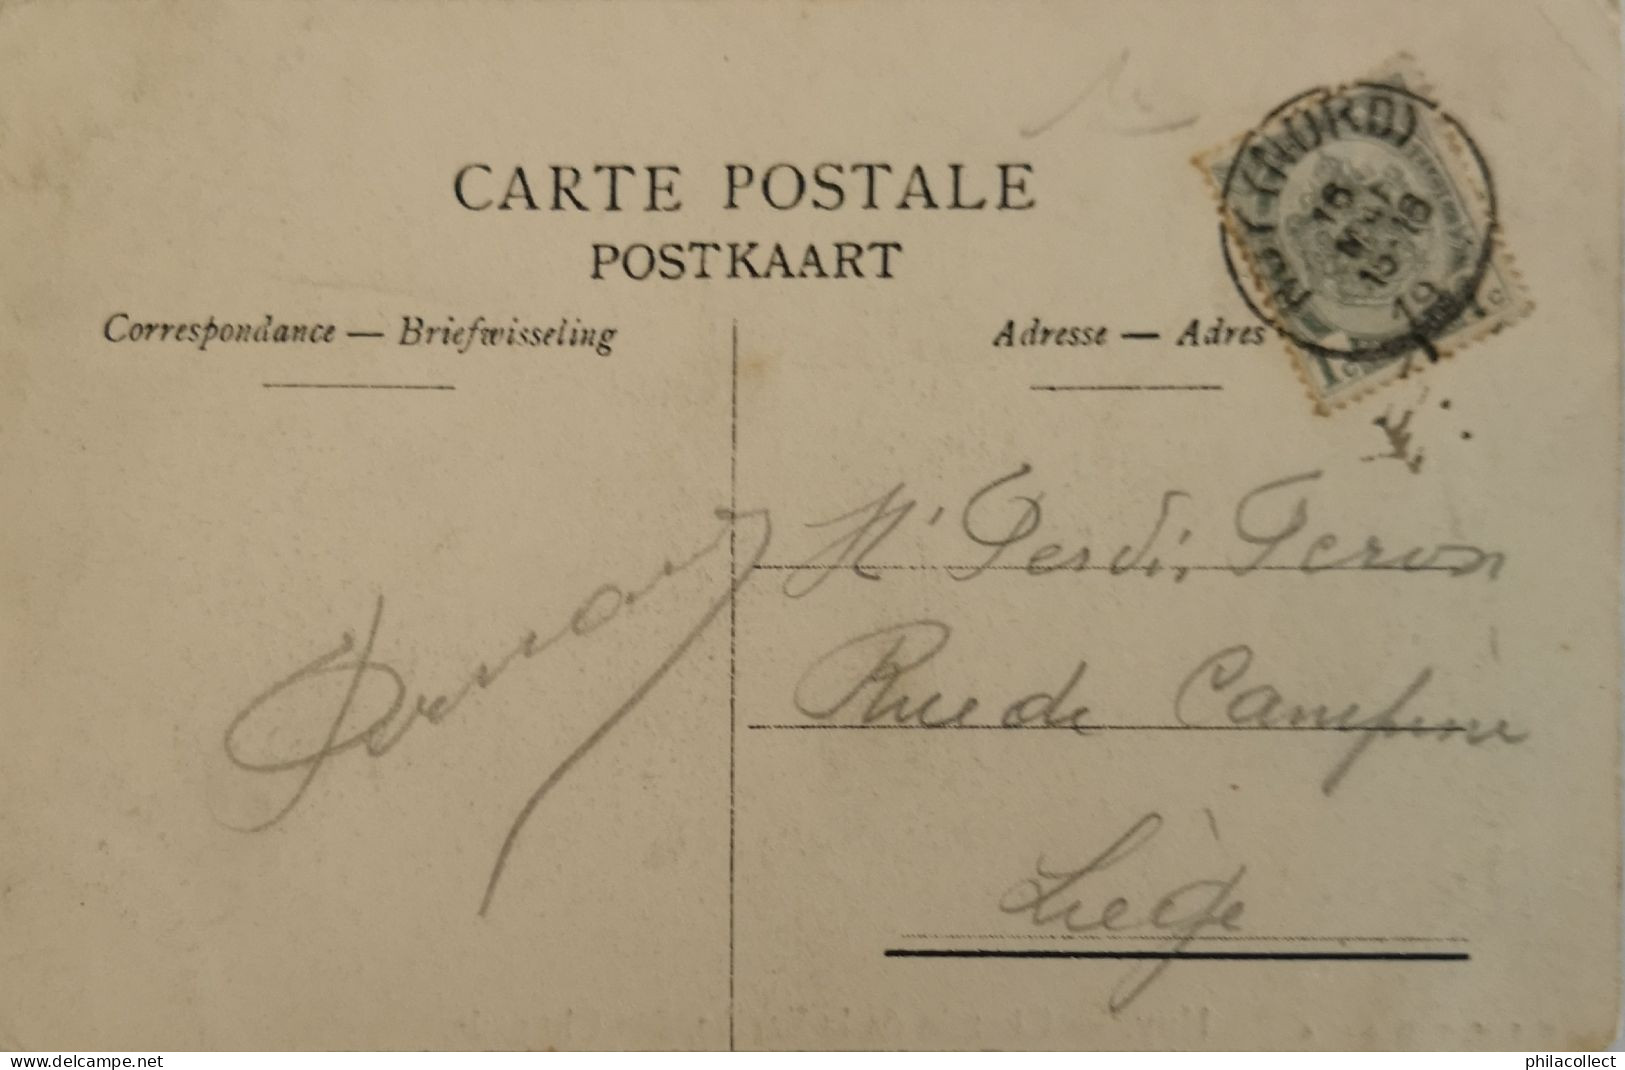 CARTE POSTALE
POSTKAART
Correspondance — Briefwisseling
Adresse — Adres
HUY (NORD)
16
15-18
19
1c
1c
Mr Ferdi, Feron
Rue de Campine
Liège
www.delcampe.net
philacollect